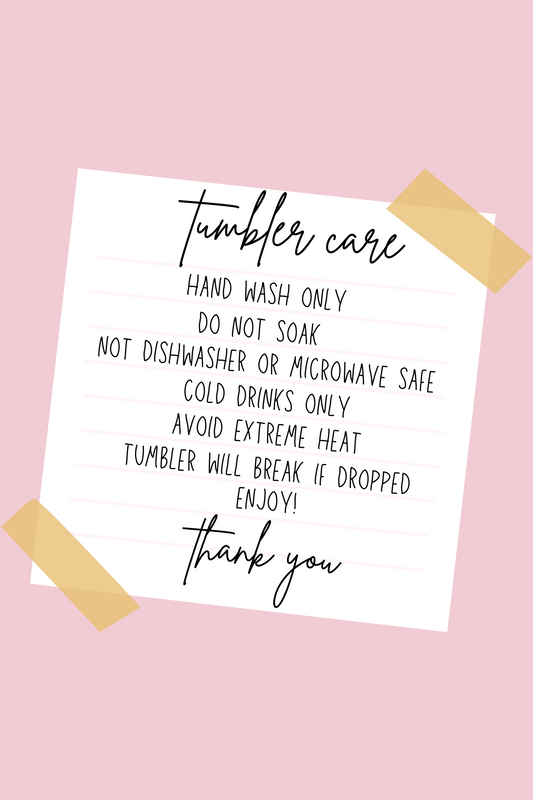 tumbler care
HAND WASH ONLY
DO NOT SOAK
NOT DISHWASHER OR MICROWAVE SAFE
COLD DRINKS ONLY
AVOID EXTREME HEAT
TUMBLER WILL BREAK IF DROPPED
ENJOY!
thank you